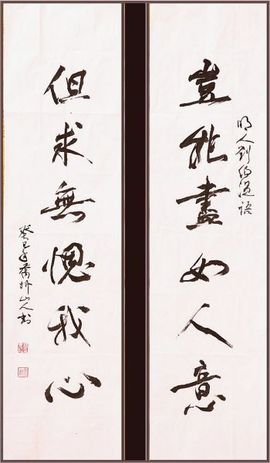 明人劉伯溫語
豈能盡如人意
但求無愧我心
癸巳年山人書